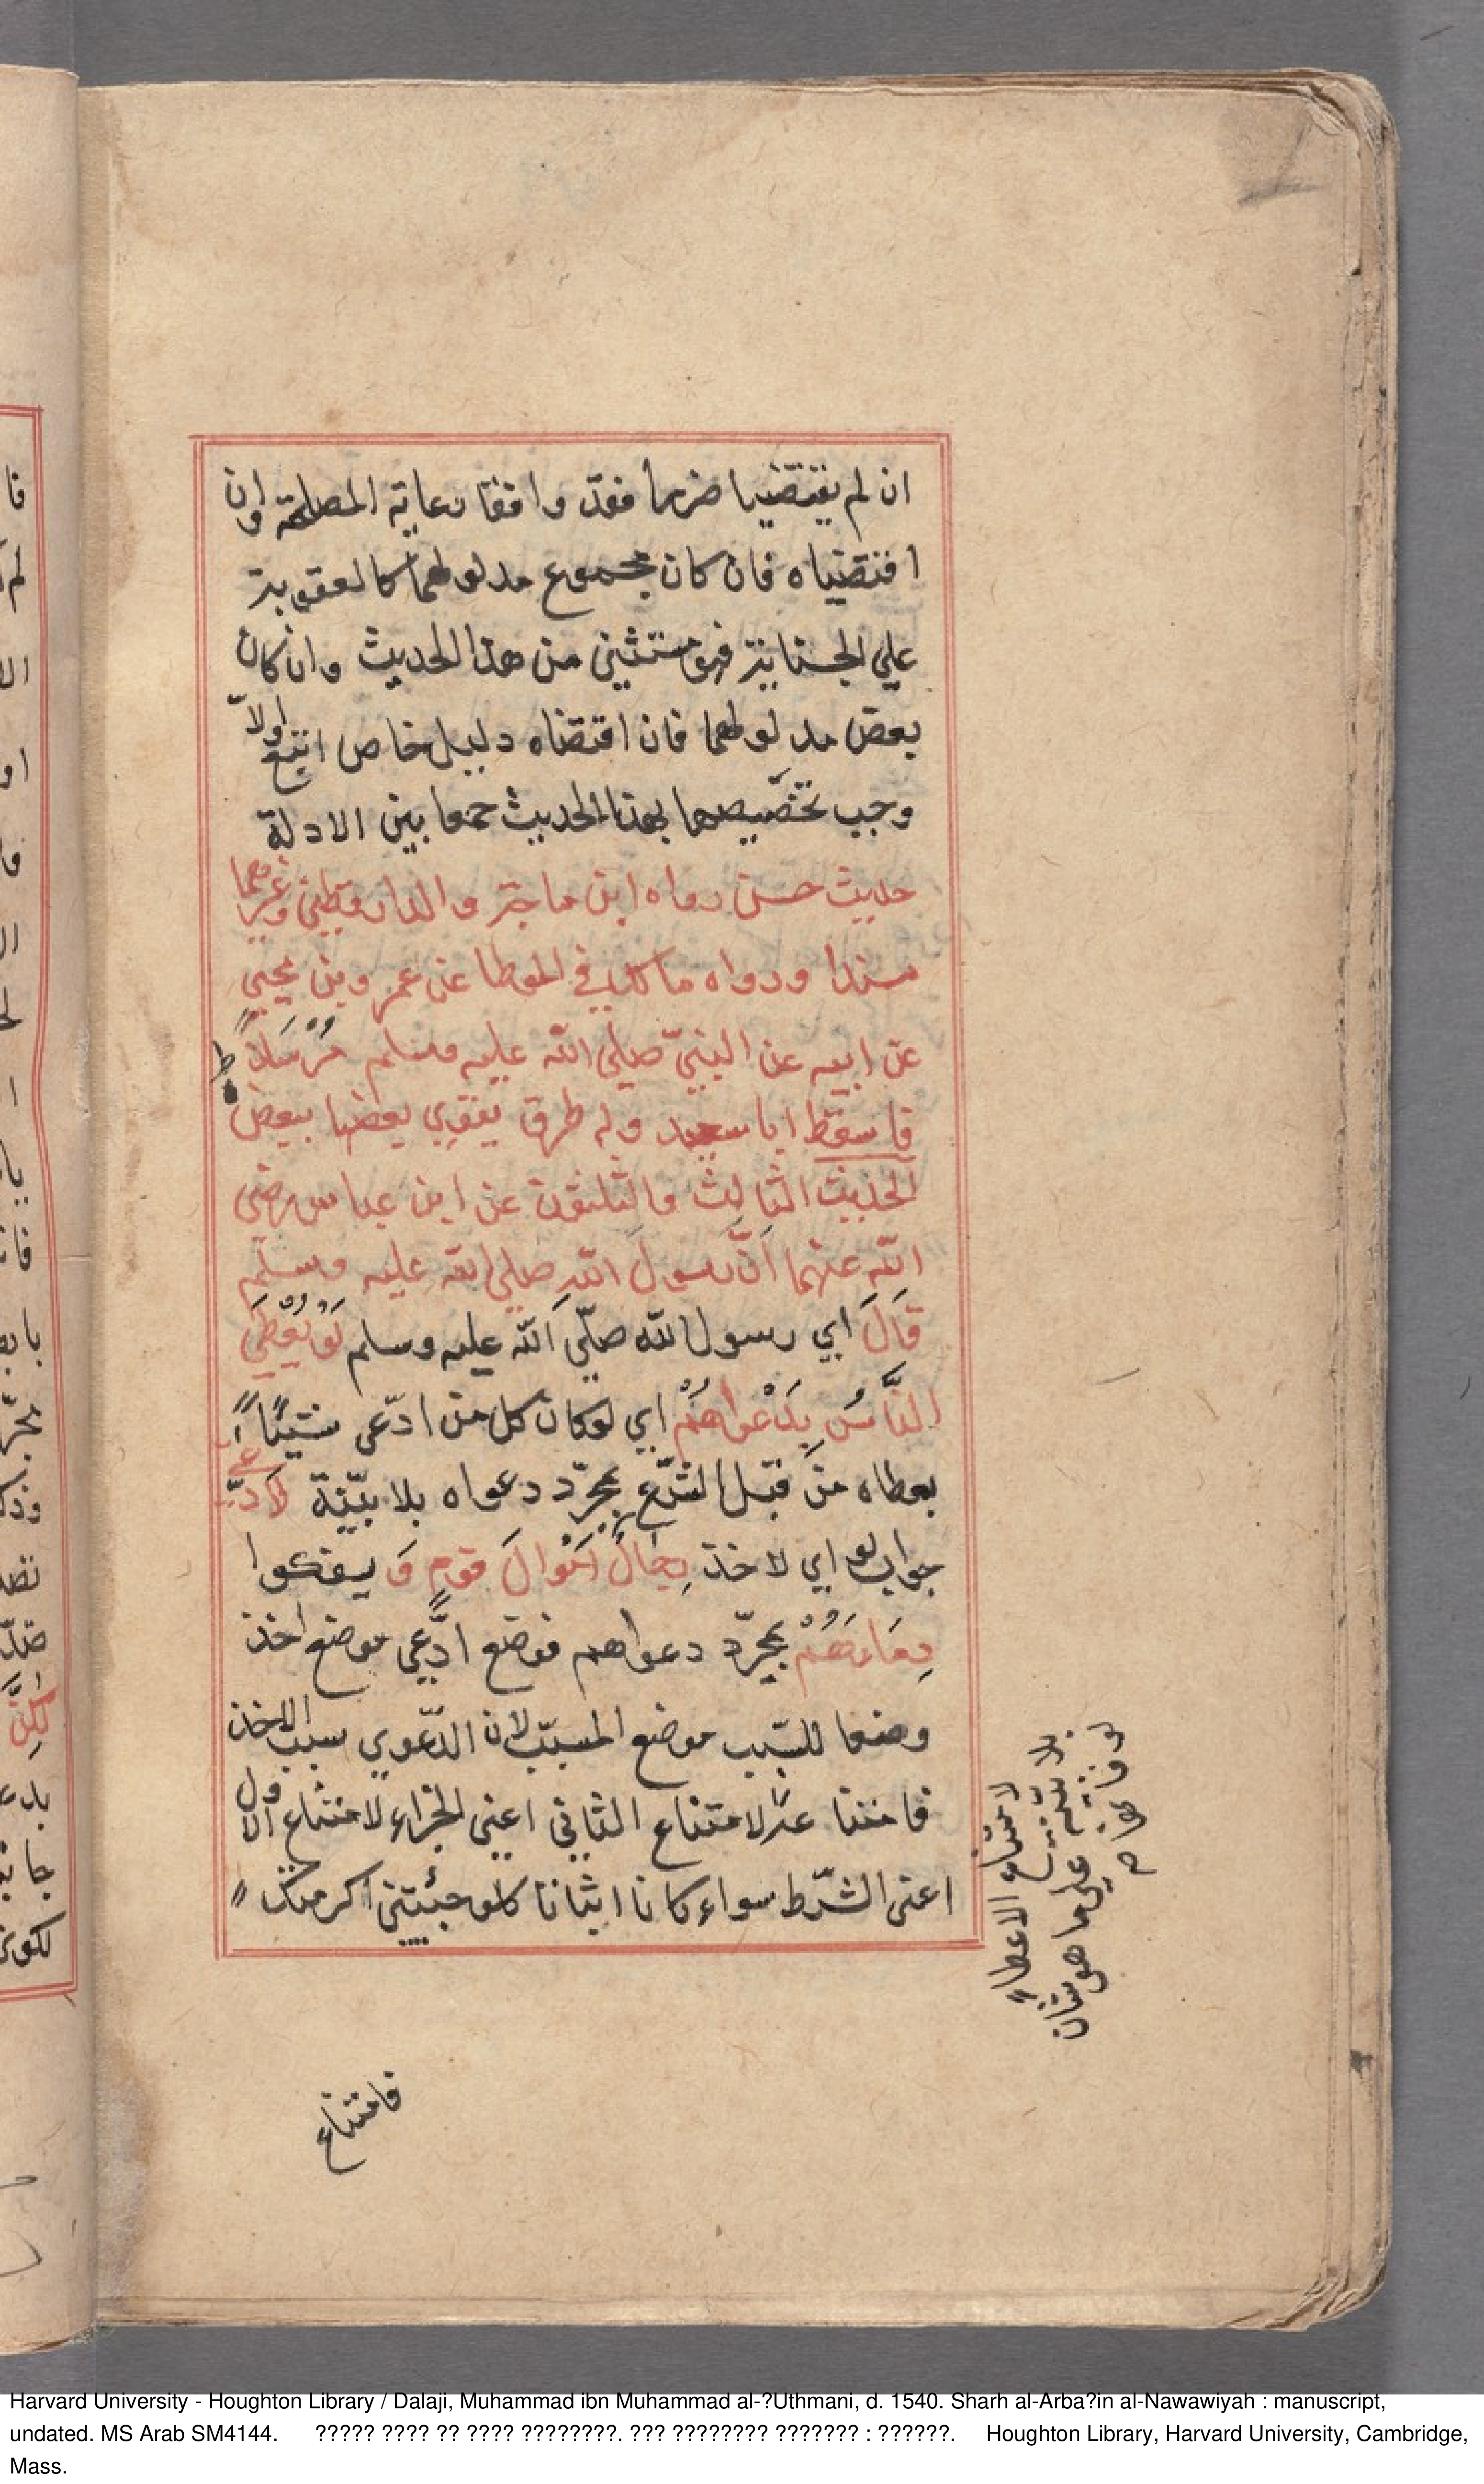 ان لم يقتضيا ضررا فقد وافقا رعاية المصلحة وان
اقتضياه فان كان مجموع مدلولهما كالعقوبة
علي الجناية فهو مستثني من هذا الحديث وان كان
بعض مدلولهما فان اقتضاه دليل خاص اتبع اولا
وجب تخصيصهما بهذا الحديث جمعا بين الادلة
حديث حسن رواه ابن ماجة والدارقطني وغيرهما
مسندا ورواه مالك في الموطا عن عمرو بن يحيي
عن ابيه عن النبيّ صلي الله عليه وسلم مُرْسَلاً
فاسقط ابا سعيد وله طرق يقوي بعضها ببعض
الحديث الثالث والثلثون عن ابن عباس رضي
الله عنهما اَنَّ رسولَ اللهِ صلي الله عليه وسلم
قَالَ اي رسول الله صلّي الله عليه وسلم لَوْ يُعْطَي
النَّاسُ بِدَعْواهُمْ اي لو كان كل من ادّعى شيئًا
يعطاه من قبل الشّرع بمجرّد دعواه بلا بيّنة لاَدَّعى
جواب لو اي لاخذ رِجَالٌ اَمْوَالَ قومٍ وَ يسفكوا
دِمَاءَهُمْ بمجرّد دعواهم فوضع ادَّعي موضع اخذ
وضعا للسّبب موضع المسبّب لان الدّعوي سبب الاخذ
فامتناعه لامتناع الثاني اعني الجزاء لامتناع الاول
اعنى الشّرط سواء كانا اثباتا كلو جئتني اكرمتك
لامتناع الاعطاء
علي ما هو شان
فامتناع
Harvard University - Houghton Library / Dalaji, Muhammad ibn Muhammad al-?Uthmani, d. 1540. Sharh al-Arba?in al-Nawawiyah : manuscript,
undated. MS Arab SM4144. ????? ???? ?? ???? ????????. ??? ???????? ??????? : ??????. Houghton Library, Harvard University, Cambridge,
Mass.